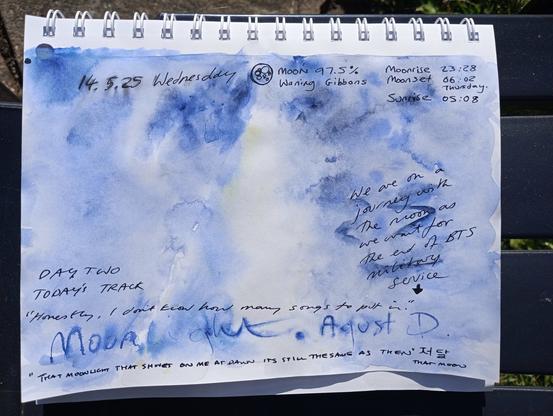 14.5.25 Wednesday
MOON 97.5%
Waning Gibbons
Moonrise 23:28
Moonset 06:02
Thursday.
Sunrise 05:08
We are on a
journey with
the moon as
we wait for
the end of BTS
military
service
DAY TWO
TODAY'S TRACK
"Honestly, I don't know how many songs to put in."
Moonlight. Agust D.
"THAT MOONLIGHT THAT SHINES ON ME AT DAWN ITS STILL THE SAME AS THEN" 저 달
THAT MOON